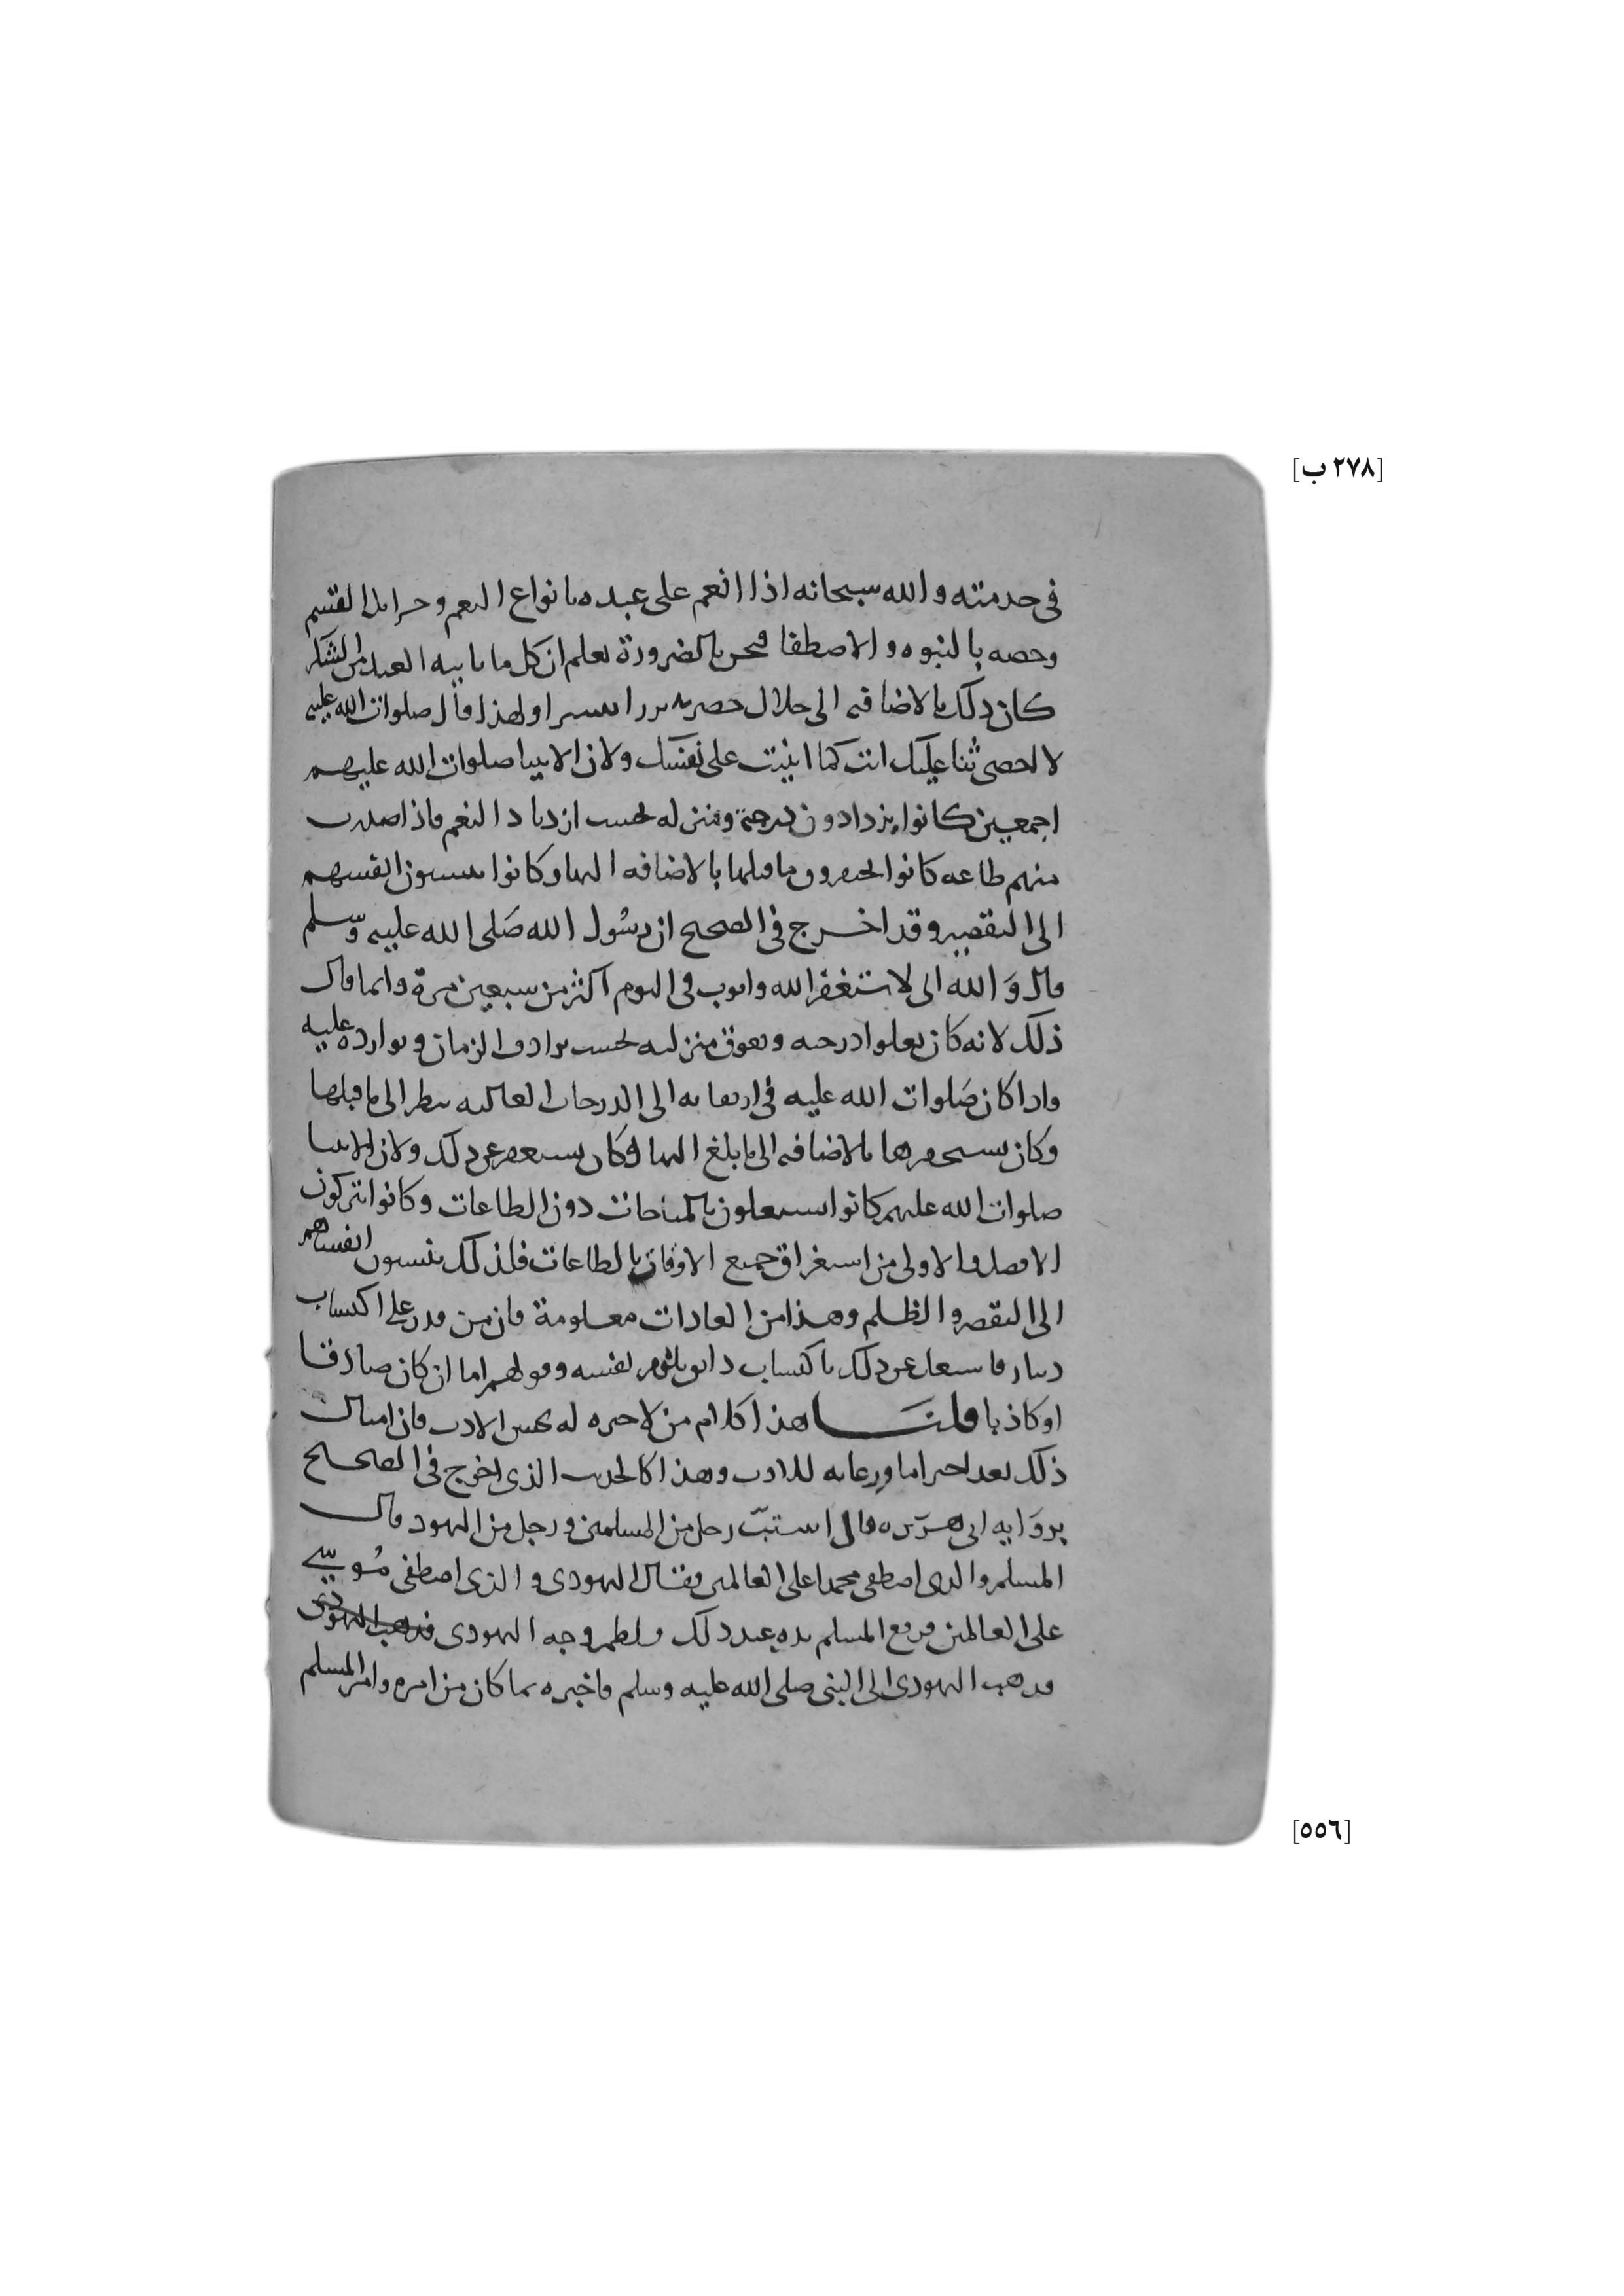 [٢٧٨ ب]
فى خدمته والله سبحانه اذا انعم على عبده بانواع النعم وجزايل القسم
وخصه بالنبوه والاصطفا فنحن بالضرورة نعلم ان كل ما ياتيه العبد من الشكر
كان ذلك بالاضافه الى جلال حضرته نزرا يسيرا ولهذا قال صلوات الله عليه
لا احصى ثنا عليك انت كما اثنيت على نفسك ولان الانبيا صلوات الله عليهم
اجمعين كانوا يزدادون درجة ومنزله بحسب ازدياد النعم فاذا صدرت
منهم طاعه كانوا يحقرون ما قبلها بالاضافه اليها وكانوا ينسبون انفسهم
الى التقصير وقد اخرج فى الصحيح ان رسول الله صلى الله عليه وسلم
قال والله انى لاستغفر الله واتوب فى اليوم اكثر من سبعين مرة وانما قال
ذلك لانه كان يعلوا درجه وتفوق منزلته بحسب ترادف الزمان وتوارده عليه
واذا كان صلوات الله عليه فى ارتقايه الى الدرجات العاليه ينظر الى ما قبلها
وكان يستحقرها بالاضافه الى ما بلغ اليها وكان يستغفر عن ذلك ولان الانبيا
صلوات الله عليهم كانوا يشتغلون بالمباحات دون الطاعات وكانوا يتركون
الافضل والاولى من استغراق جميع الاوقات بالطاعات فلذلك ينسبون انفسهم
الى التقصير والظلم وهذا من العادات معلومة فان من قدر على اكتساب
دينار فاشتغل عن ذلك باكتساب دانق يلوم نفسه وقولهم اما ان كان صادقا
او كاذبا قلنا هذا كلام من لا خبره له بحسن الادب فان امثال
ذلك يعد احتراما ورعايه للادب وهذا كالحديث الذى اخرج فى الصحيح
بروايه ابى هريره قال استبّ رجل من المسلمين ورجل من اليهود قال
المسلم والذى اصطفى محمدا على العالمين فقال اليهودى والذى اصطفى موسى
على العالمين فرفع المسلم يده عند ذلك ولطم وجه اليهودى فذهب اليهودى
فذهب اليهودى الى النبى صلى الله عليه وسلم فاخبره بما كان من امره وامر المسلم
[٥٥٦]